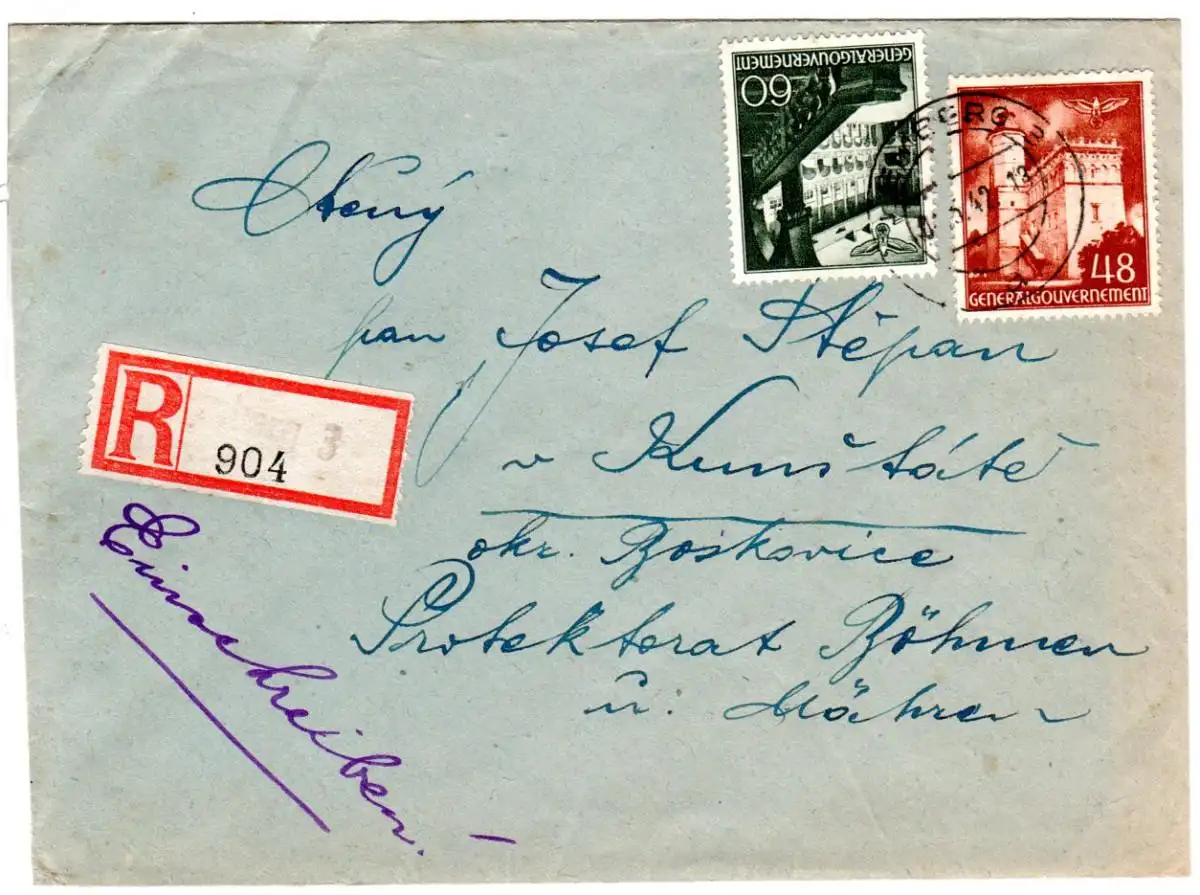 GENERALGOUVERNEMENT
60
48
GENERALGOUVERNEMENT
LEMBERG 2
Ctěný
pan Josef Štěpan
v Kunštátě
okr. Boskovice
Protektorat Böhmen
u. Mähren
R
3
904
Einschreiben!